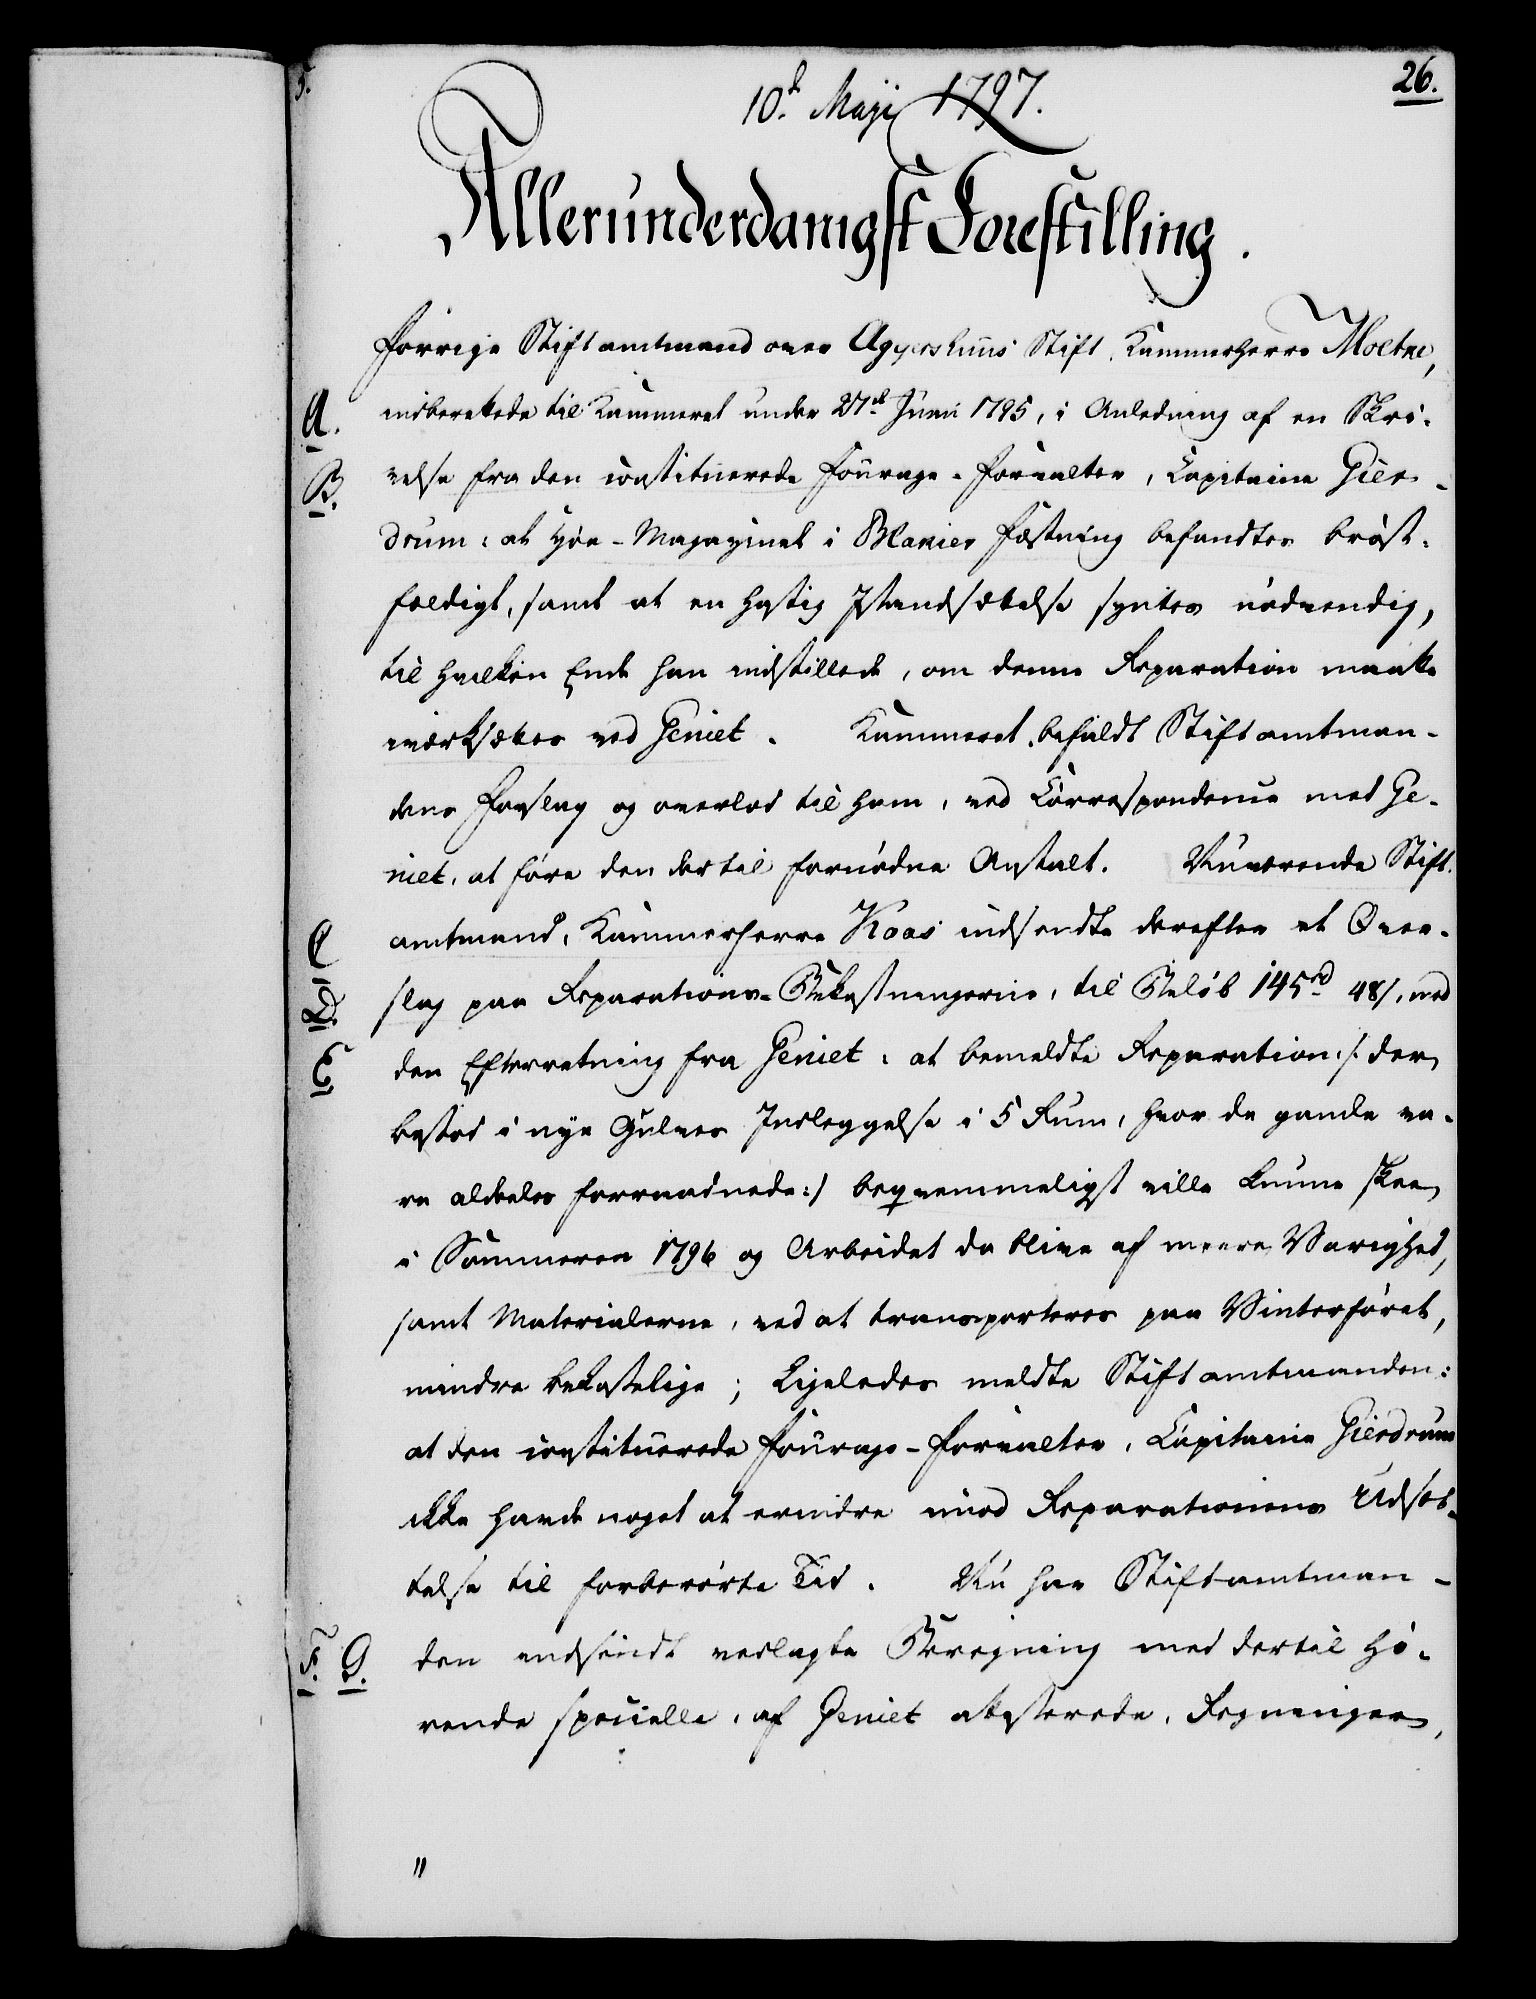 26.
10.d Maji 1797.
Allerunderdanigst Forestilling.
Forrige Stiftamtmand over Aggershuus Stift, Kammerherre Moltke,
A. indberettede til Kammeret under 27.d Junii 1795, i Anledning af en Skri-
B. velse fra den constituerede Fourage-Forvalter, Capitaine Gier-
drum: at Høe-Magazinet i Blakier Fæstning befandtes brøst-
fældigt, samt at en hastig Istandsættelse syntes nødvendig,
til hvilken Ende han indstillede, om denne Reparation maatte
iværksættes ved Geniet. Kammeret bifaldt Stiftamtman-
dens Forslag og overlod til ham, ved Correspondence med Ge-
niet, at føre den dertil fornødne Anstalt. Nuværende Stift-
C amtmand, Kammerherre Kaas indsendte derefter et Over-
D. slag paa Reparations-Bekostningerne, til Beløb 145 rd 48 s, med
E den Efterretning fra Geniet: at bemeldte Reparation /: der
bestod i nye Gulves Indleggelse i 5 Rum, hvor de gamle va-
re aldeles forraadnede :/ beqvemmeligst ville kunne skee
i Sommeren 1796 og Arbeidet da blive af meere Varighed,
samt Materialerne, ved at transporteres paa Vinterføret,
mindre bekostelige; Ligeledes meldte Stiftamtmanden:
at den constituerede Fourage-Forvalter, Capitaine Gierdrum
ikke havde noget at erindre imod Reparationens Udsæt-
telse til forberørte Tid. Nu har Stiftamtman-
F. G. den indsendt vedlagte Beregning med dertil hø-
rende specielle, af Geniet attesterede, Regninger,
"